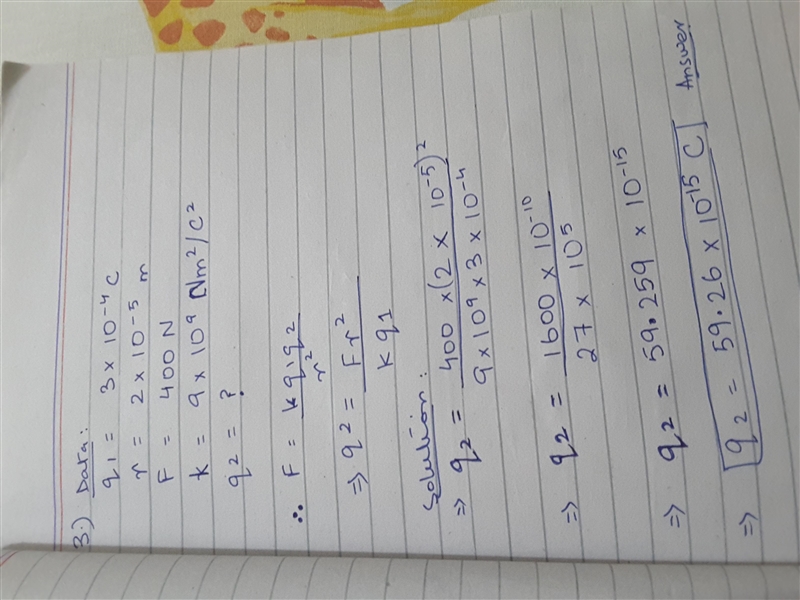 3.) Data:
q1 = 3 x 10^-4 C
r = 2 x 10^-5 m
F = 400 N
k = 9 x 10^9 Nm^2/C^2
q2 = ?
∴ F = kq1q2/r^2
⇒ q2 = Fr^2/kq1
Solution:
⇒ q2 = 400 x (2 x 10^-5)^2 / 9 x 10^9 x 3 x 10^-4
⇒ q2 = 1600 x 10^-10 / 27 x 10^5
⇒ q2 = 59.259 x 10^-15
⇒ q2 = 59.26 x 10^-15 C Answer